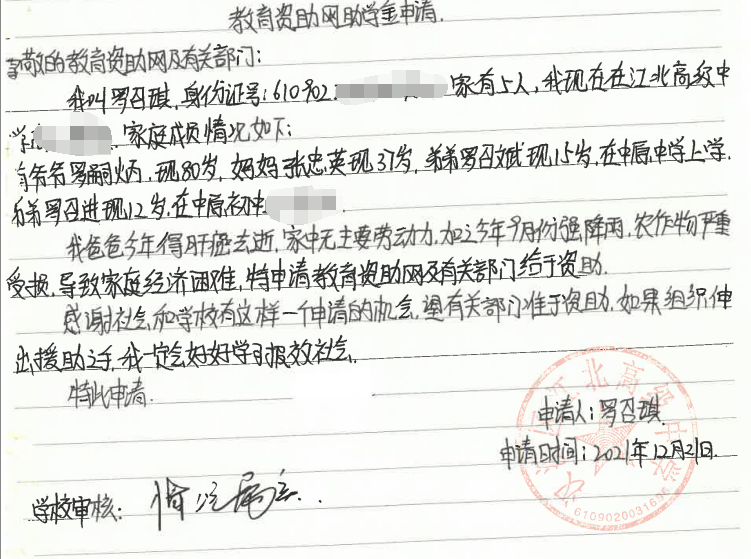 教育资助网助学金申请.
尊敬的教育资助网及有关部门:
我叫罗召琪,身份证号:610902 家有5人,我现在在江北高级中
学 家庭成员情况如下:
有爷爷罗嗣炳,现80岁,妈妈张忠英现37岁,弟弟罗召斌现15岁,在中原中学上学,
弟弟罗召进现12岁,在中原初中
我爸爸今年得肝癌去逝,家中无主要劳动力,加之今年9月份强降雨,农作物严重
受损,导致家庭经济困难,特申请教育资助网及有关部门给于资助.
感谢社会和学校有这样一个申请的机会,望有关部门准于资助,如果组织伸
出援助之手,我一定会好好学习报效社会.
特此申请.
申请人:罗召琪.
申请日期:2021年12月21日.
学校审核:
江北高级中学
6109020031696